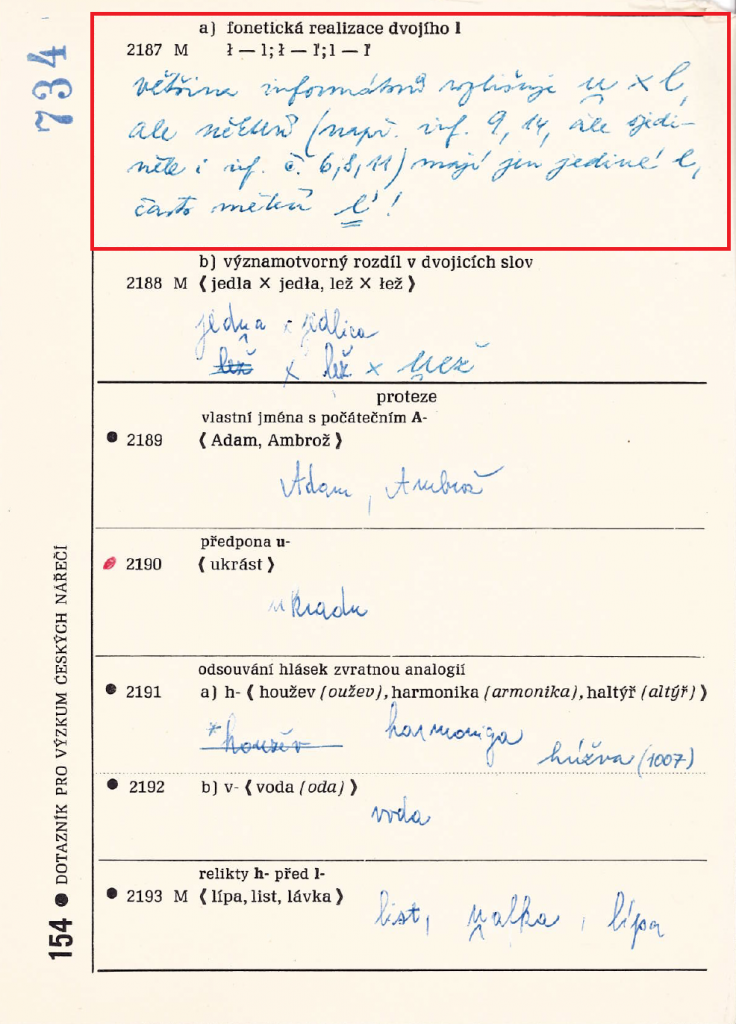 734
a) fonetická realizace dvojího l
2187 M ł — l; ł — ľ; l — ľ
většina informátorů rozlišuje u̯ × l,
ale někteří (např. inf. 9, 14, ale ojedi-
něle i inf. č. 6, 8, 11) mají jen jediné l,
často měkčí l'!
b) významotvorný rozdíl v dvojicích slov
2188 M ⟨ jedla × jedła, lež × łež ⟩
jedu̯a × jedlica
lež × lež × u̯ež
proteze
vlastní jména s počátečním A-
● 2189 ⟨ Adam, Ambrož ⟩
Adam, Ambrož
předpona u-
● 2190 ⟨ ukrást ⟩
ukradu
odsouvání hlásek zvratnou analogií
● 2191 a) h- ⟨ houžev (oužev), harmonika (armonika), haltýř (altýř) ⟩
harmoniga
húžva (1007)
● 2192 b) v- ⟨ voda (oda) ⟩
voda
relikty h- před l-
● 2193 M ⟨ lípa, list, lávka ⟩
list, u̯alka, lípa
154 ● DOTAZNÍK PRO VÝZKUM ČESKÝCH NÁŘEČÍ